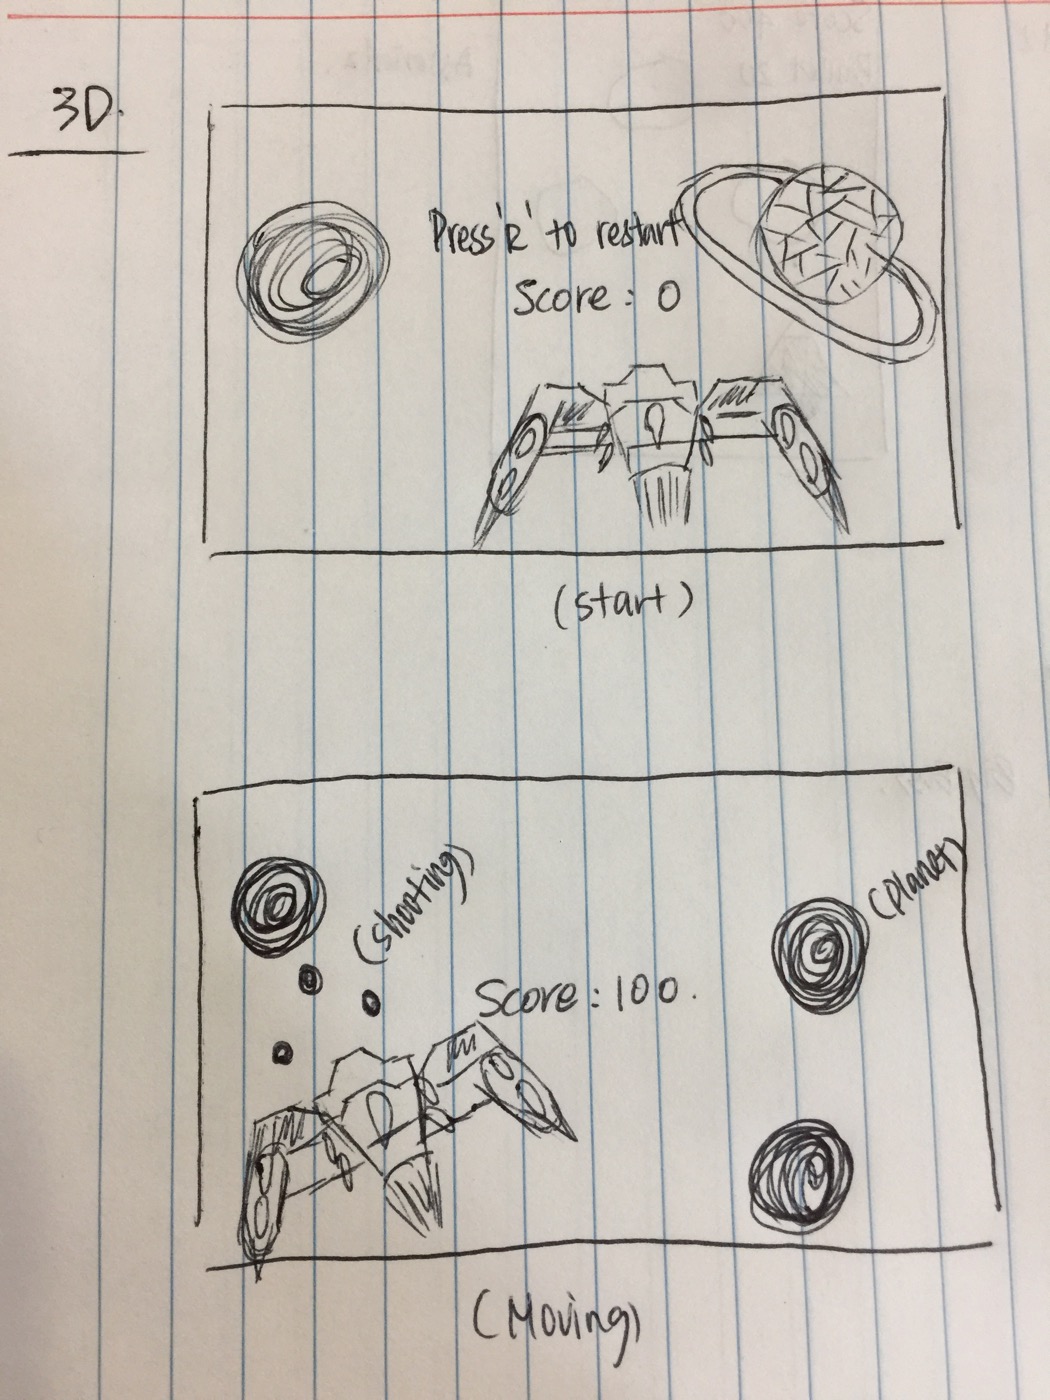 3D.
Press 'R' to restart
Score : 0
(start)
(shooting)
(planet)
Score : 100.
(Moving)